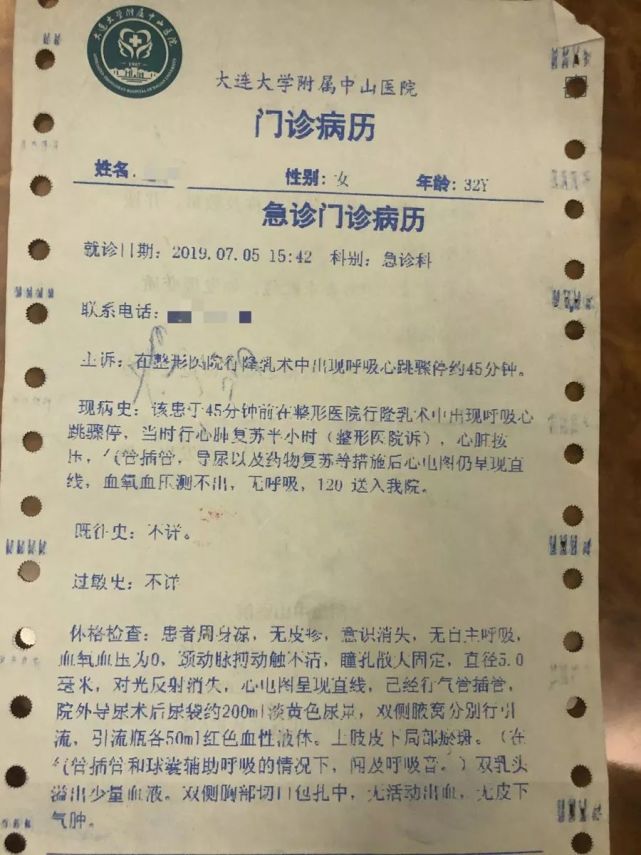 大连大学附属中山医院
大连大学附属中山医院
门诊病历
姓名: 性别: 女 年龄: 32Y
急诊门诊病历
就诊日期: 2019.07.05 15:42 科别: 急诊科
联系电话:
主诉: 在整形医院行隆乳术中出现呼吸心跳骤停约45分钟。
现病史: 该患于45分钟前在整形医院行隆乳术中出现呼吸心
跳骤停, 当时行心肺复苏半小时 (整形医院诉), 心脏按
压, 气管插管, 导尿以及药物复苏等措施后心电图仍呈现直
线, 血氧血压测不出, 无呼吸, 120 送入我院。
既往史: 不详。
过敏史: 不详
体格检查: 患者周身凉, 无皮疹, 意识消失, 无自主呼吸,
血氧血压为0, 颈动脉搏动触不清, 瞳孔散大固定, 直径5.0
毫米, 对光反射消失, 心电图呈现直线, 已经行气管插管,
院外导尿术后尿袋约200ml淡黄色尿液, 双侧腋窝分别行引
流, 引流瓶各50ml红色血性液体。上肢皮下局部瘀斑。(在
气管插管和球囊辅助呼吸的情况下, 闻及呼吸音。) 双乳头
溢出少量血液。双侧胸部切口包扎中, 无活动出血, 无皮下
气肿。